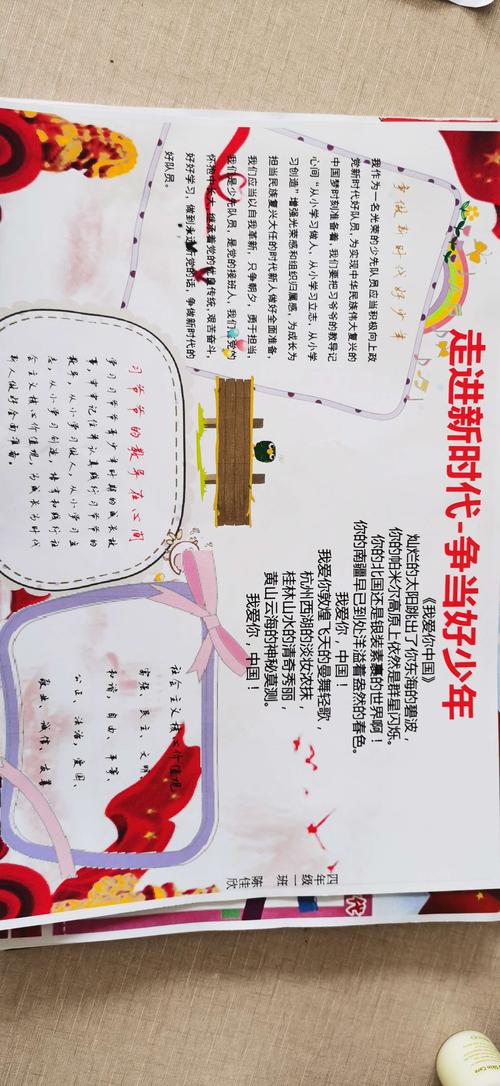 走进新时代-争当好少年
争做新时代好少年
我作为一名光荣的少先队员应当积极向上政
党新时代好队员,为实现中华民族伟大复兴的
中国梦时刻准备着;我们要把习爷爷的教导记
心间 “从小学习做人,从小学习立志,从小学
习创造”增强光荣感和组织归属感,为成长为
担当民族复兴大任的时代新人做好全面准备,
我们应当以自我革新,只争朝夕,勇于担当
我们是少先队员,是党的接班人,我们 党的
怀抱中长大,继承着党的优良传统,艰苦奋斗,
好好学习,做到永远听党的话,争做新时代的
好队员。
《我爱你中国》
灿烂的太阳跳出了你东海的碧波,
你的帕米尔高原上依然是群星闪烁。
你的北国还是银装素裹的世界啊!
你的南疆早已到处洋溢着盎然的春色。
我爱你,中国!
我爱你敦煌飞天的曼舞轻歌,
杭州西湖的淡妆浓抹,
桂林山水的清奇秀丽,
黄山云海的神秘莫测。
我爱你,中国!
习爷爷的教导在心间
学习习爷爷青少年时期的成长故
事,牢牢记住并认真践行习爷爷的
教导,从小学习做人、从小学习立
志,从小学习创造,培育和践行社
会主义核心价值观,为成长为时代
新人做好全面准备。
社会主义核心价值观
富强、民主、文明、
和谐、自由、平等、
公正、法治、爱国、
敬业、诚信、友善
四年级一班陈佳欣
代
Skin Care